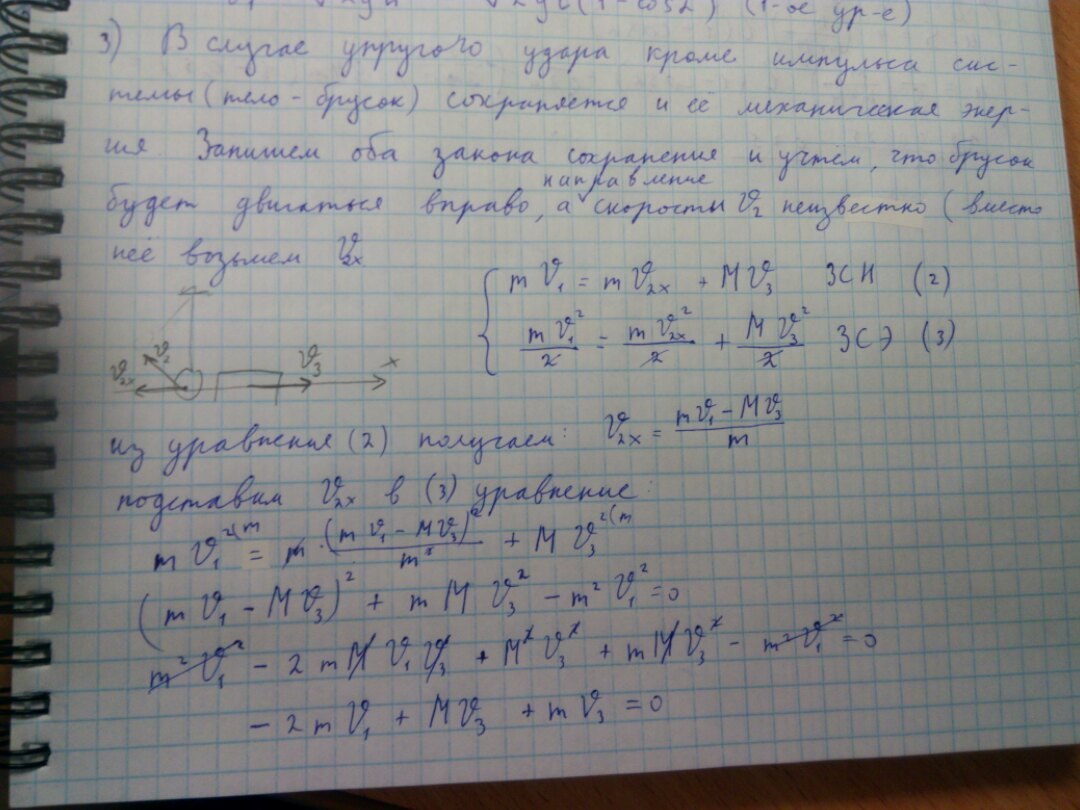 3) В случае упругого удара кроме импульса сис-
темы (тело - брусок) сохраняется и её механическая энер-
гия. Запишем оба закона сохранения и учтём, что брусок
будет двигаться вправо, а направление скорости υ₂ неизвестно (вместо
неё возьмем υ₂ₓ
mυ₁ = mυ₂ₓ + Mυ₃ ЗСИ (2)
mυ₁²/2 = mυ₂ₓ²/2 + Mυ₃²/2 ЗСЭ (3)
υ₂ₓ υ₂ υ₃ x
из уравнения (2) получаем: υ₂ₓ = (mυ₁ - Mυ₃)/m
подставим υ₂ₓ в (3) уравнение:
mυ₁² (m = m · (mυ₁ - Mυ₃)²/m² + Mυ₃² (m
(mυ₁ - Mυ₃)² + mMυ₃² - m²υ₁² = 0
m²υ₁² - 2mMυ₁υ₃ + M²υ₃² + mMυ₃² - m²υ₁² = 0
- 2mυ₁ + Mυ₃ + mυ₃ = 0